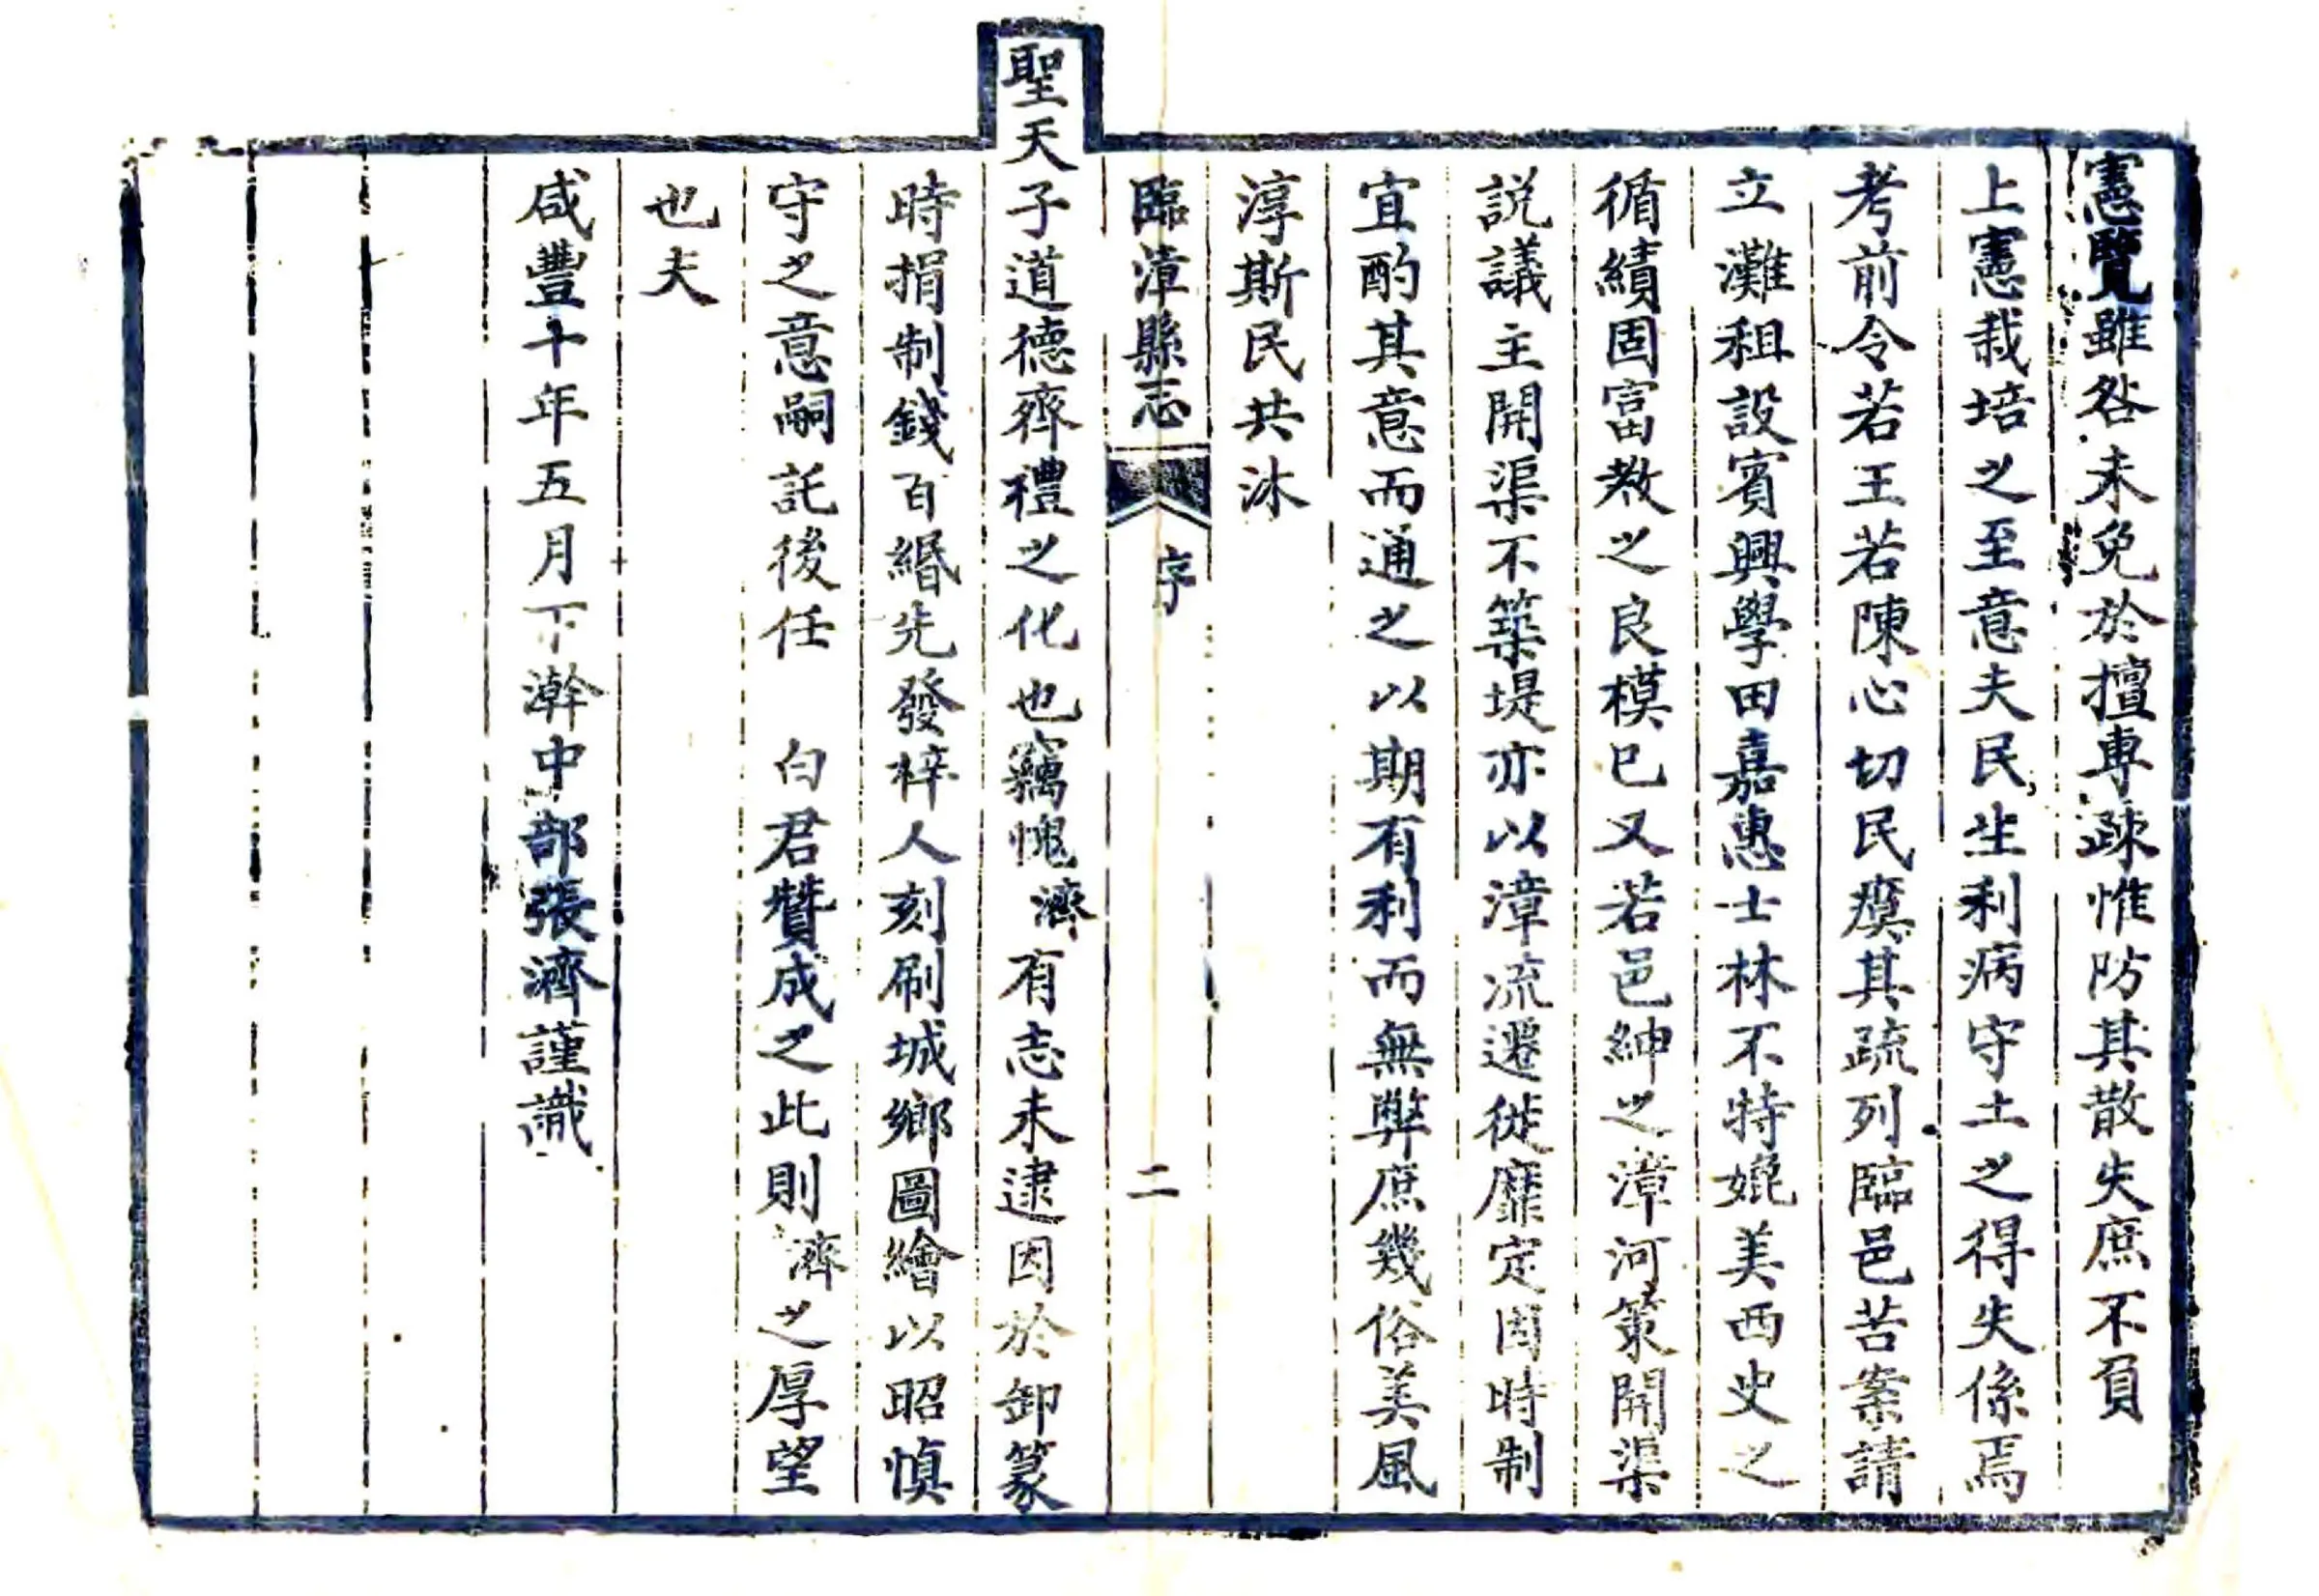 憲覽雖咎未免於擅專疎惟防其散失庶不負
上憲栽培之至意夫民生利病守土之得失係焉
考前令若王若陳心切民瘼其疏列臨邑苦案請
立灘租設賓興學田嘉惠士林不特媲美西史之
循績固富教之良模已又若邑紳之漳河策開渠
説議主開渠不築堤亦以漳流遷徙靡定因時制
宜酌其意而通之以期有利而無弊庶幾俗美風
淳斯民共沐
臨漳縣志 序 二
聖天子道德齊禮之化也竊愧濟有志未逮因於卸篆
時捐制錢百緡先發梓人刻刷城鄉圖繪以昭慎
守之意嗣託後任 白君贊成之此則濟之厚望
也夫
咸豐十年五月下澣中部張濟謹識